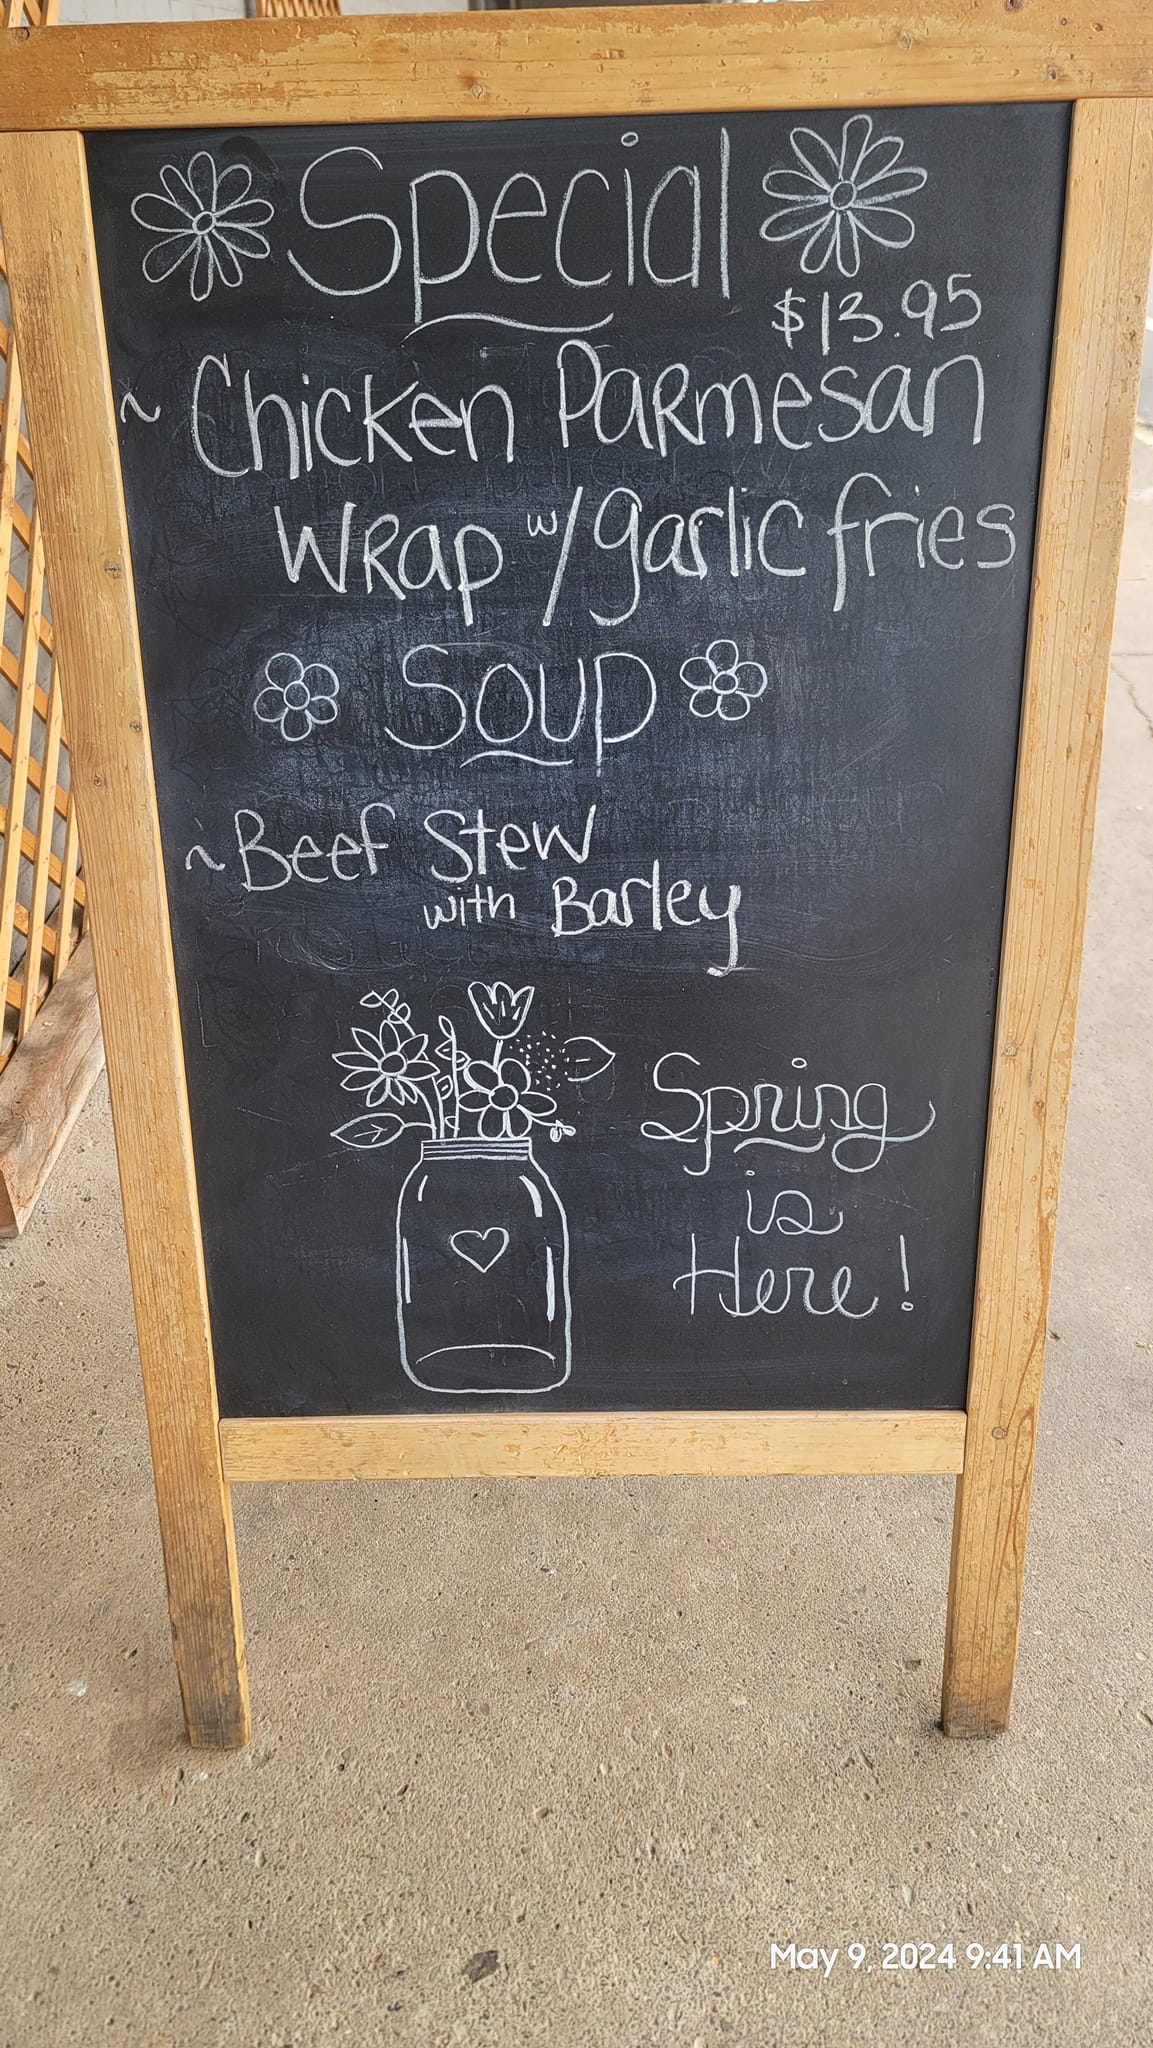 Special
$13.95
~ Chicken Parmesan
Wrap w/ garlic fries
Soup
~ Beef Stew
with Barley
Spring
is
Here!
May 9, 2024 9:41 AM